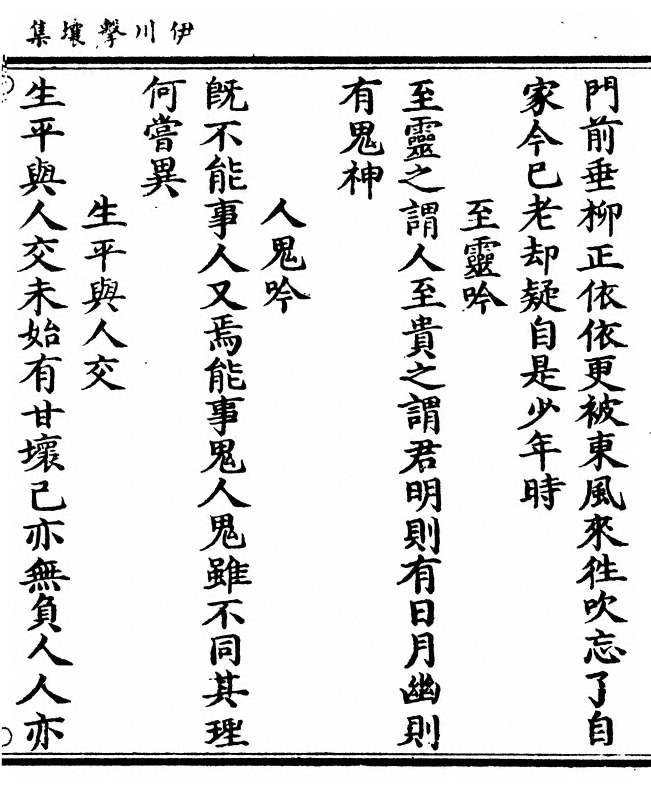 伊川擊壤集
門前垂柳正依依更被東風來徃吹忘了自
家今已老却疑自是少年時
至靈吟
至靈之謂人至貴之謂君明則有日月幽則
有鬼神
人鬼吟
旣不能事人又焉能事鬼人鬼雖不同其理
何嘗異
生平與人交
生平與人交未始有甘壞己亦無負人人亦